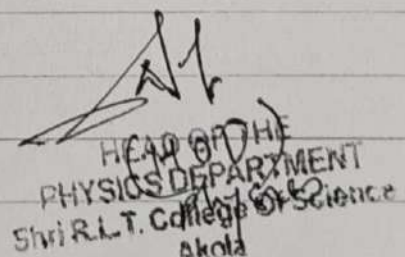 HEAD OF THE
PHYSICS DEPARTMENT
Shri R.L.T. College Of Science
Akola